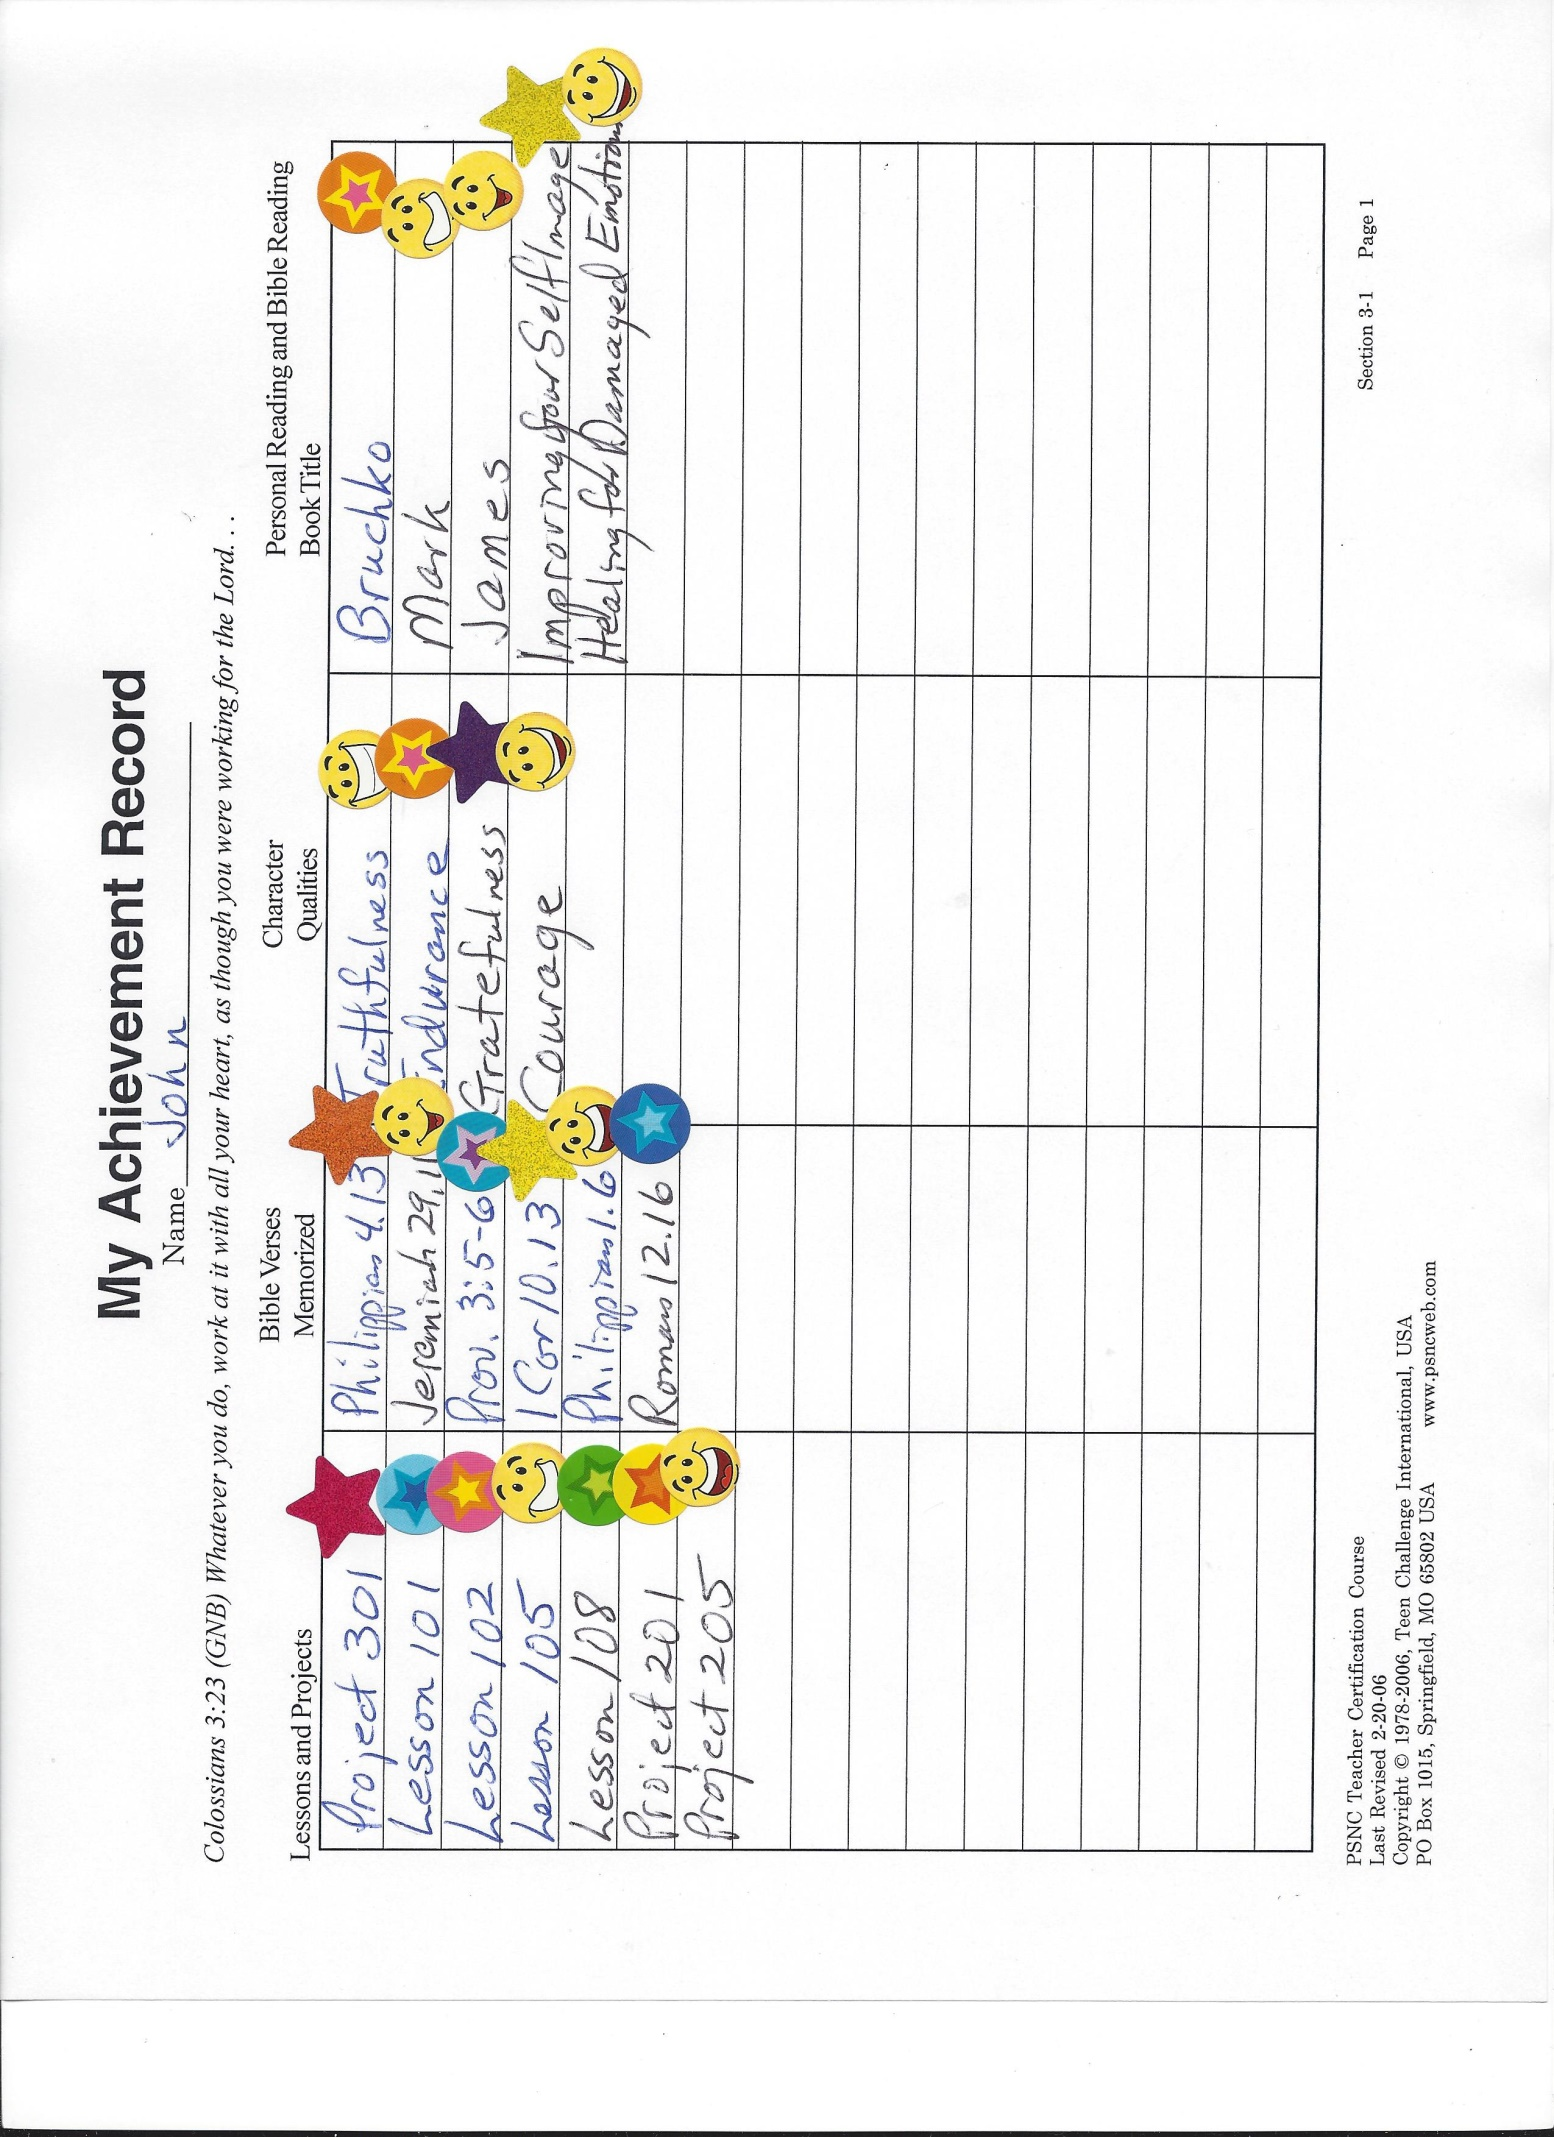 My Achievement Record
Name John
Colossians 3:23 (GNB) Whatever you do, work at it with all your heart, as though you were working for the Lord. . .
Lessons and Projects
Bible Verses Memorized
Character Qualities
Personal Reading and Bible Reading
Book Title
Project 301 Philippians 4.13 Truthfulness Bruchko
Lesson 101 Jeremiah 29.11 Endurance Mark
Lesson 102 Prov. 3:5-6 Gratefulness James
Lesson 105 1 Cor 10.13 Courage Improving Your Self Image
Lesson 108 Philippians 1.6 Healing for Damaged Emotions
Project 201 Romans 12.16
Project 205
PSNC Teacher Certification Course Section 3-1 Page 1
Last Revised 2-20-06
Copyright © 1978-2006, Teen Challenge International, USA
PO Box 1015, Springfield, MO 65802 USA www.psncweb.com